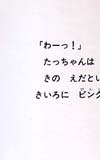 「わーっ！」
たっちゃんは
きの えだとい
きいろに ピンク